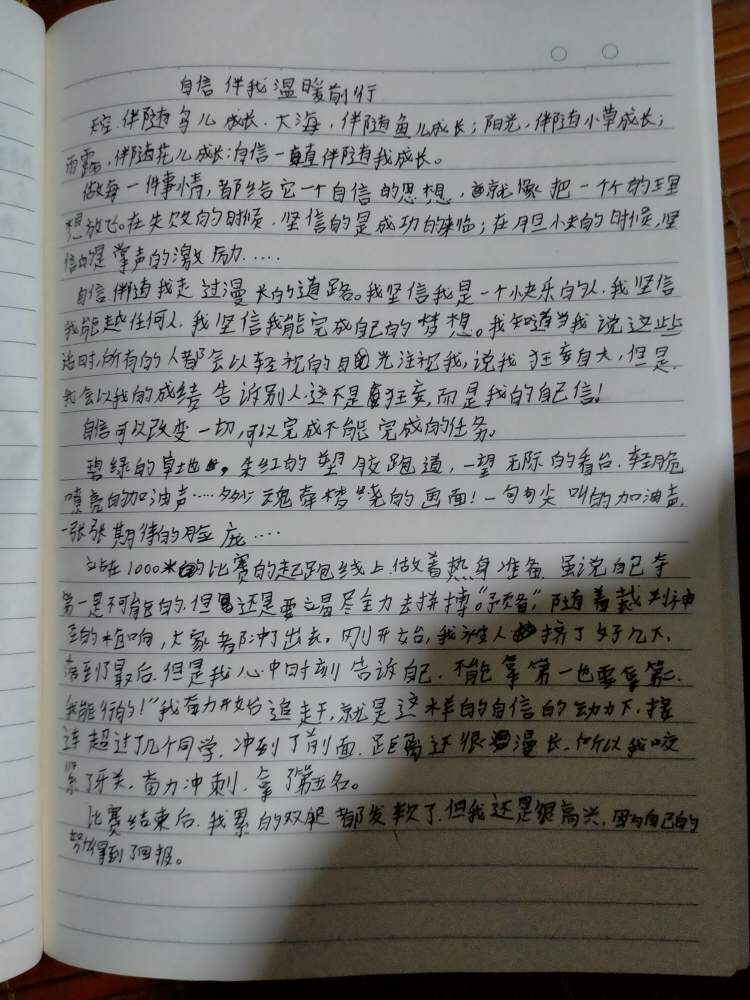 自信伴我温暖前行
天空,伴随鸟儿成长.大海,伴随鱼儿成长;阳光,伴随小草成长;
雨露,伴随花儿成长:自信一直伴随我成长。
做每一件事情,都给它一个自信的思想,就像把一个个的理
想放飞。在失败的时候,坚信的是成功的来临;在胆小来的时候,坚
信的是掌声的激励.....
自信伴随我走过漫长的道路。我坚信我是一个快乐的人,我坚信
我能超越任何人,我坚信我能完成自己的梦想。我知道当我说这些
话时,所有的人都会以轻视的目光注视我,说我狂妄自大,但是,
我会以我的成绩告诉别人.这不是狂妄,而是我的自己信!
自信可以改变一切,可以完成不能完成的任务。
碧绿的草地,朱红的塑胶跑道,一望无际的看台.轻脆
嘹亮的加油声....多么魂牵梦绕的画面!一句句尖叫的加油声,
一张张期待的脸庞....
站在1000米的比赛的起跑线上.做着热身准备.虽说自己夺
第一是不可能的.但还是要竭尽全力去拼搏。"预备",随着裁判神
圣的枪响,大家都冲了出去。刚开始,我被人挤了好几下,
落到了最后.但是我心中时刻告诉自己.不能拿第一也要拿第二.
我能行的!"我奋力开始追赶,就是这样的自信的动力下,接
连超过了几个同学.冲到了前面.距离还很漫长.所以我咬
紧了牙关,奋力冲刺.拿了第五名。
比赛结束后.我累的双腿都发软了.但我还是很高兴.因为自己的
努力得到了回报。